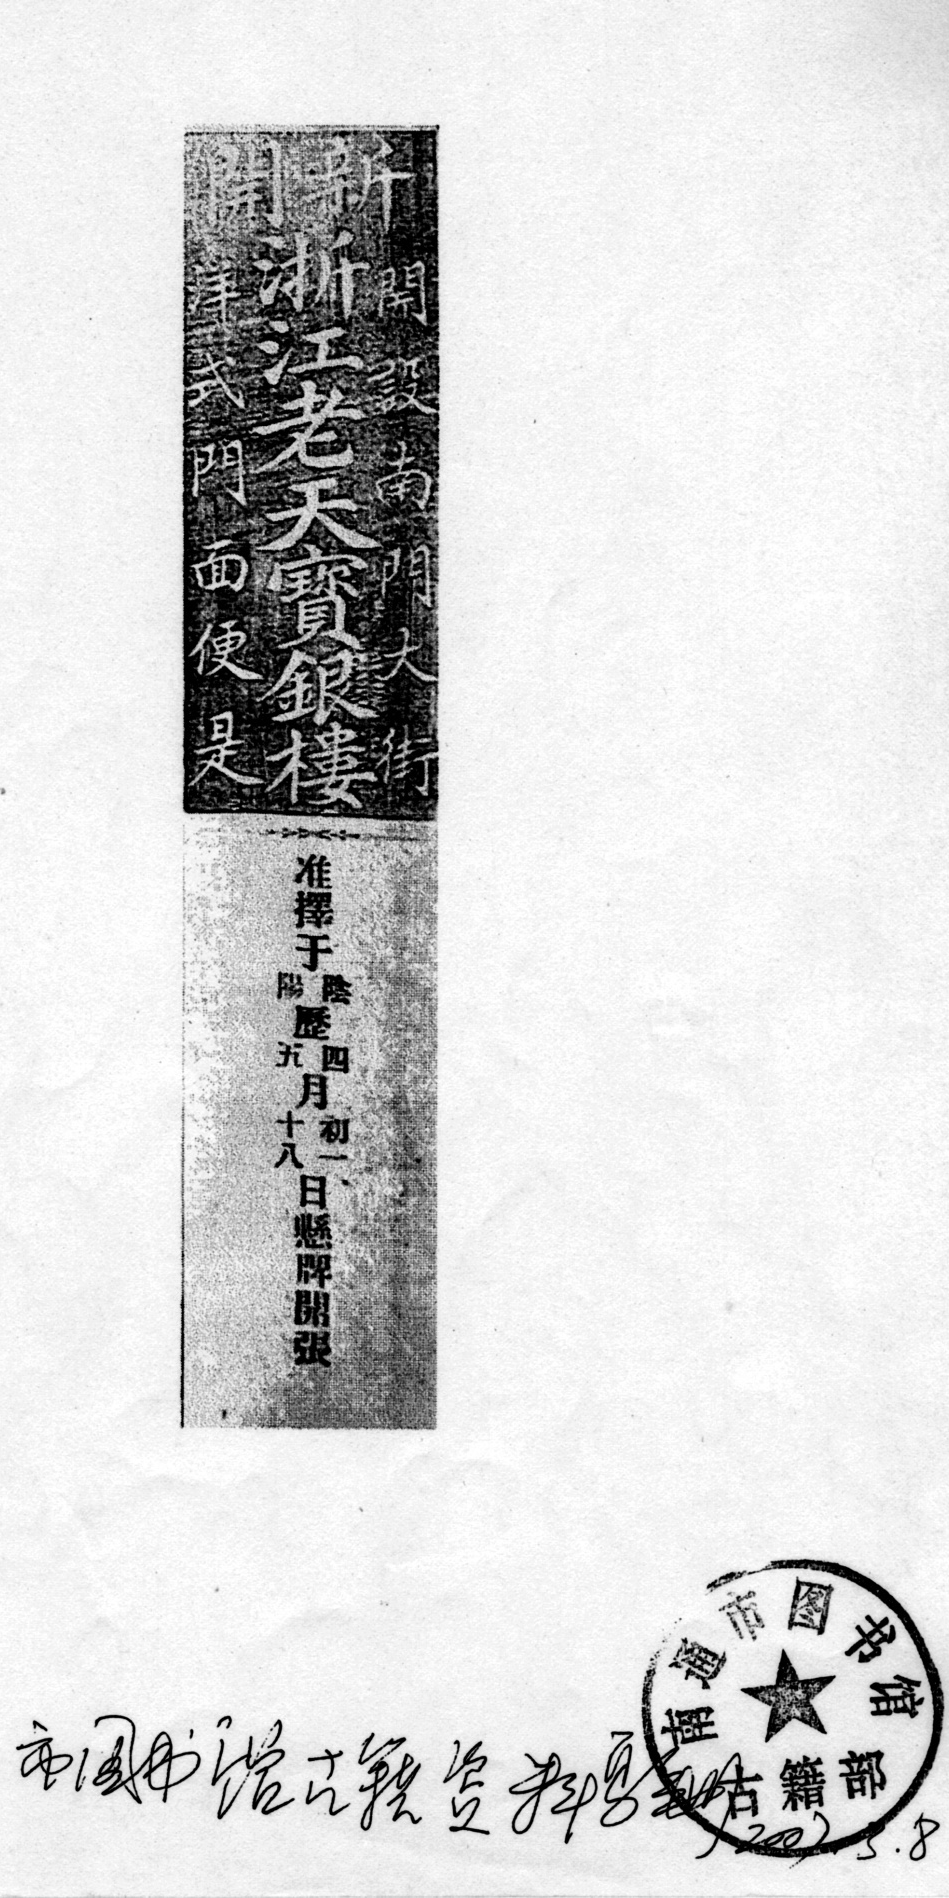 新開
開設南門大街
浙江老天寶銀樓
洋式門面便是
准擇于陰陽歷四五月初一十八日懸牌開張
南通市图书馆
古籍部
市图书馆古籍资料
2007.5.8